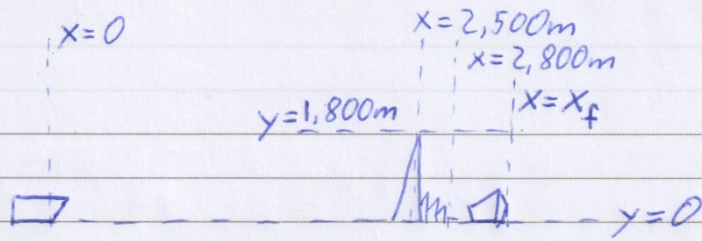 x=0
x=2,500m
x=2,800m
x=x_f
y=1,800m
y=0